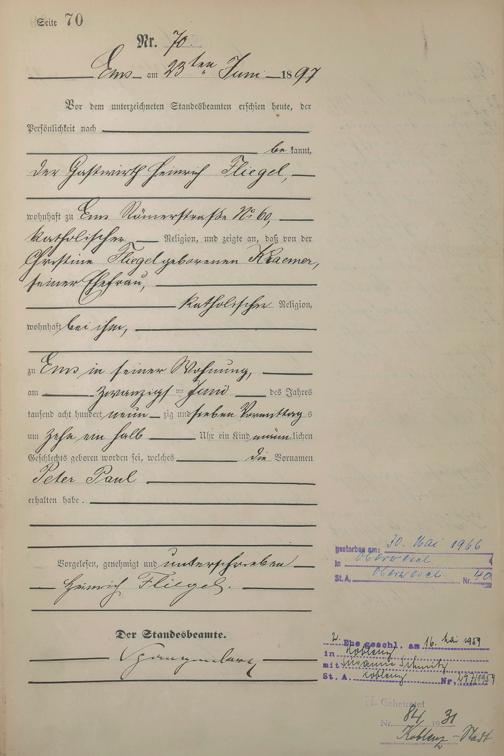 Seite 70
Nr. 70.
Ems am 23ten Juni 1897
Vor dem unterzeichneten Standesbeamten erschien heute, der
Persönlichkeit nach
be kannt,
der Gastwirth Heinrich Fliegel,
wohnhaft zu Ems Römerstraße No 60,
katholischer Religion, und zeigte an, daß von der
Christine Fliegel geborenen Kraemer,
seiner Ehefrau,
katholischer Religion,
wohnhaft bei ihm,
zu Ems in seiner Wohnung,
am zwanzigsten Juni des Jahres
tausend acht hundert neun zig und sieben Vormittags
um zehn ein halb Uhr ein Kind männlichen
Geschlechts geboren worden sei, welches die Vornamen
Peter Paul
erhalten habe.
Vorgelesen, genehmigt und unterschrieben
Heinrich Fliegel.
Der Standesbeamte.
gestorben am: 30. Mai 1966
in Oberwesel
St.A. Oberwesel Nr. 40
2. Ehe geschl. am 16. Mai 1959
in Koblenz
mit Schmitz
St. A. Koblenz Nr.
Nr. 84 1931
Koblenz-Stadt